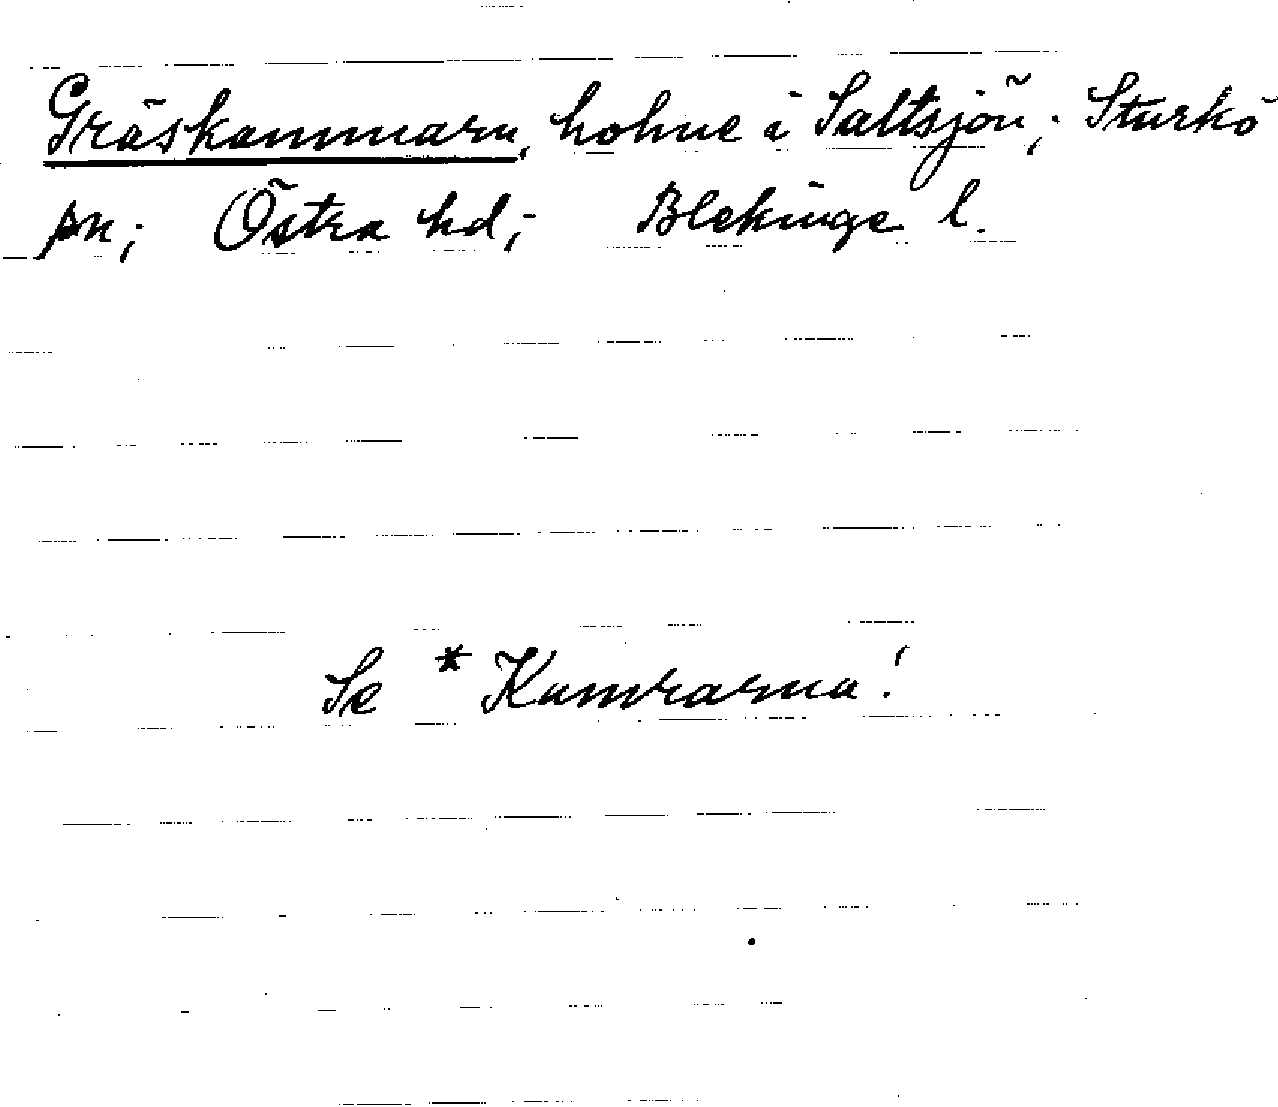 Gräskammarn, holme i Saltsjön; Sturkö
sn; Östra hd; Blekinge l.
Se * Kamrarna!